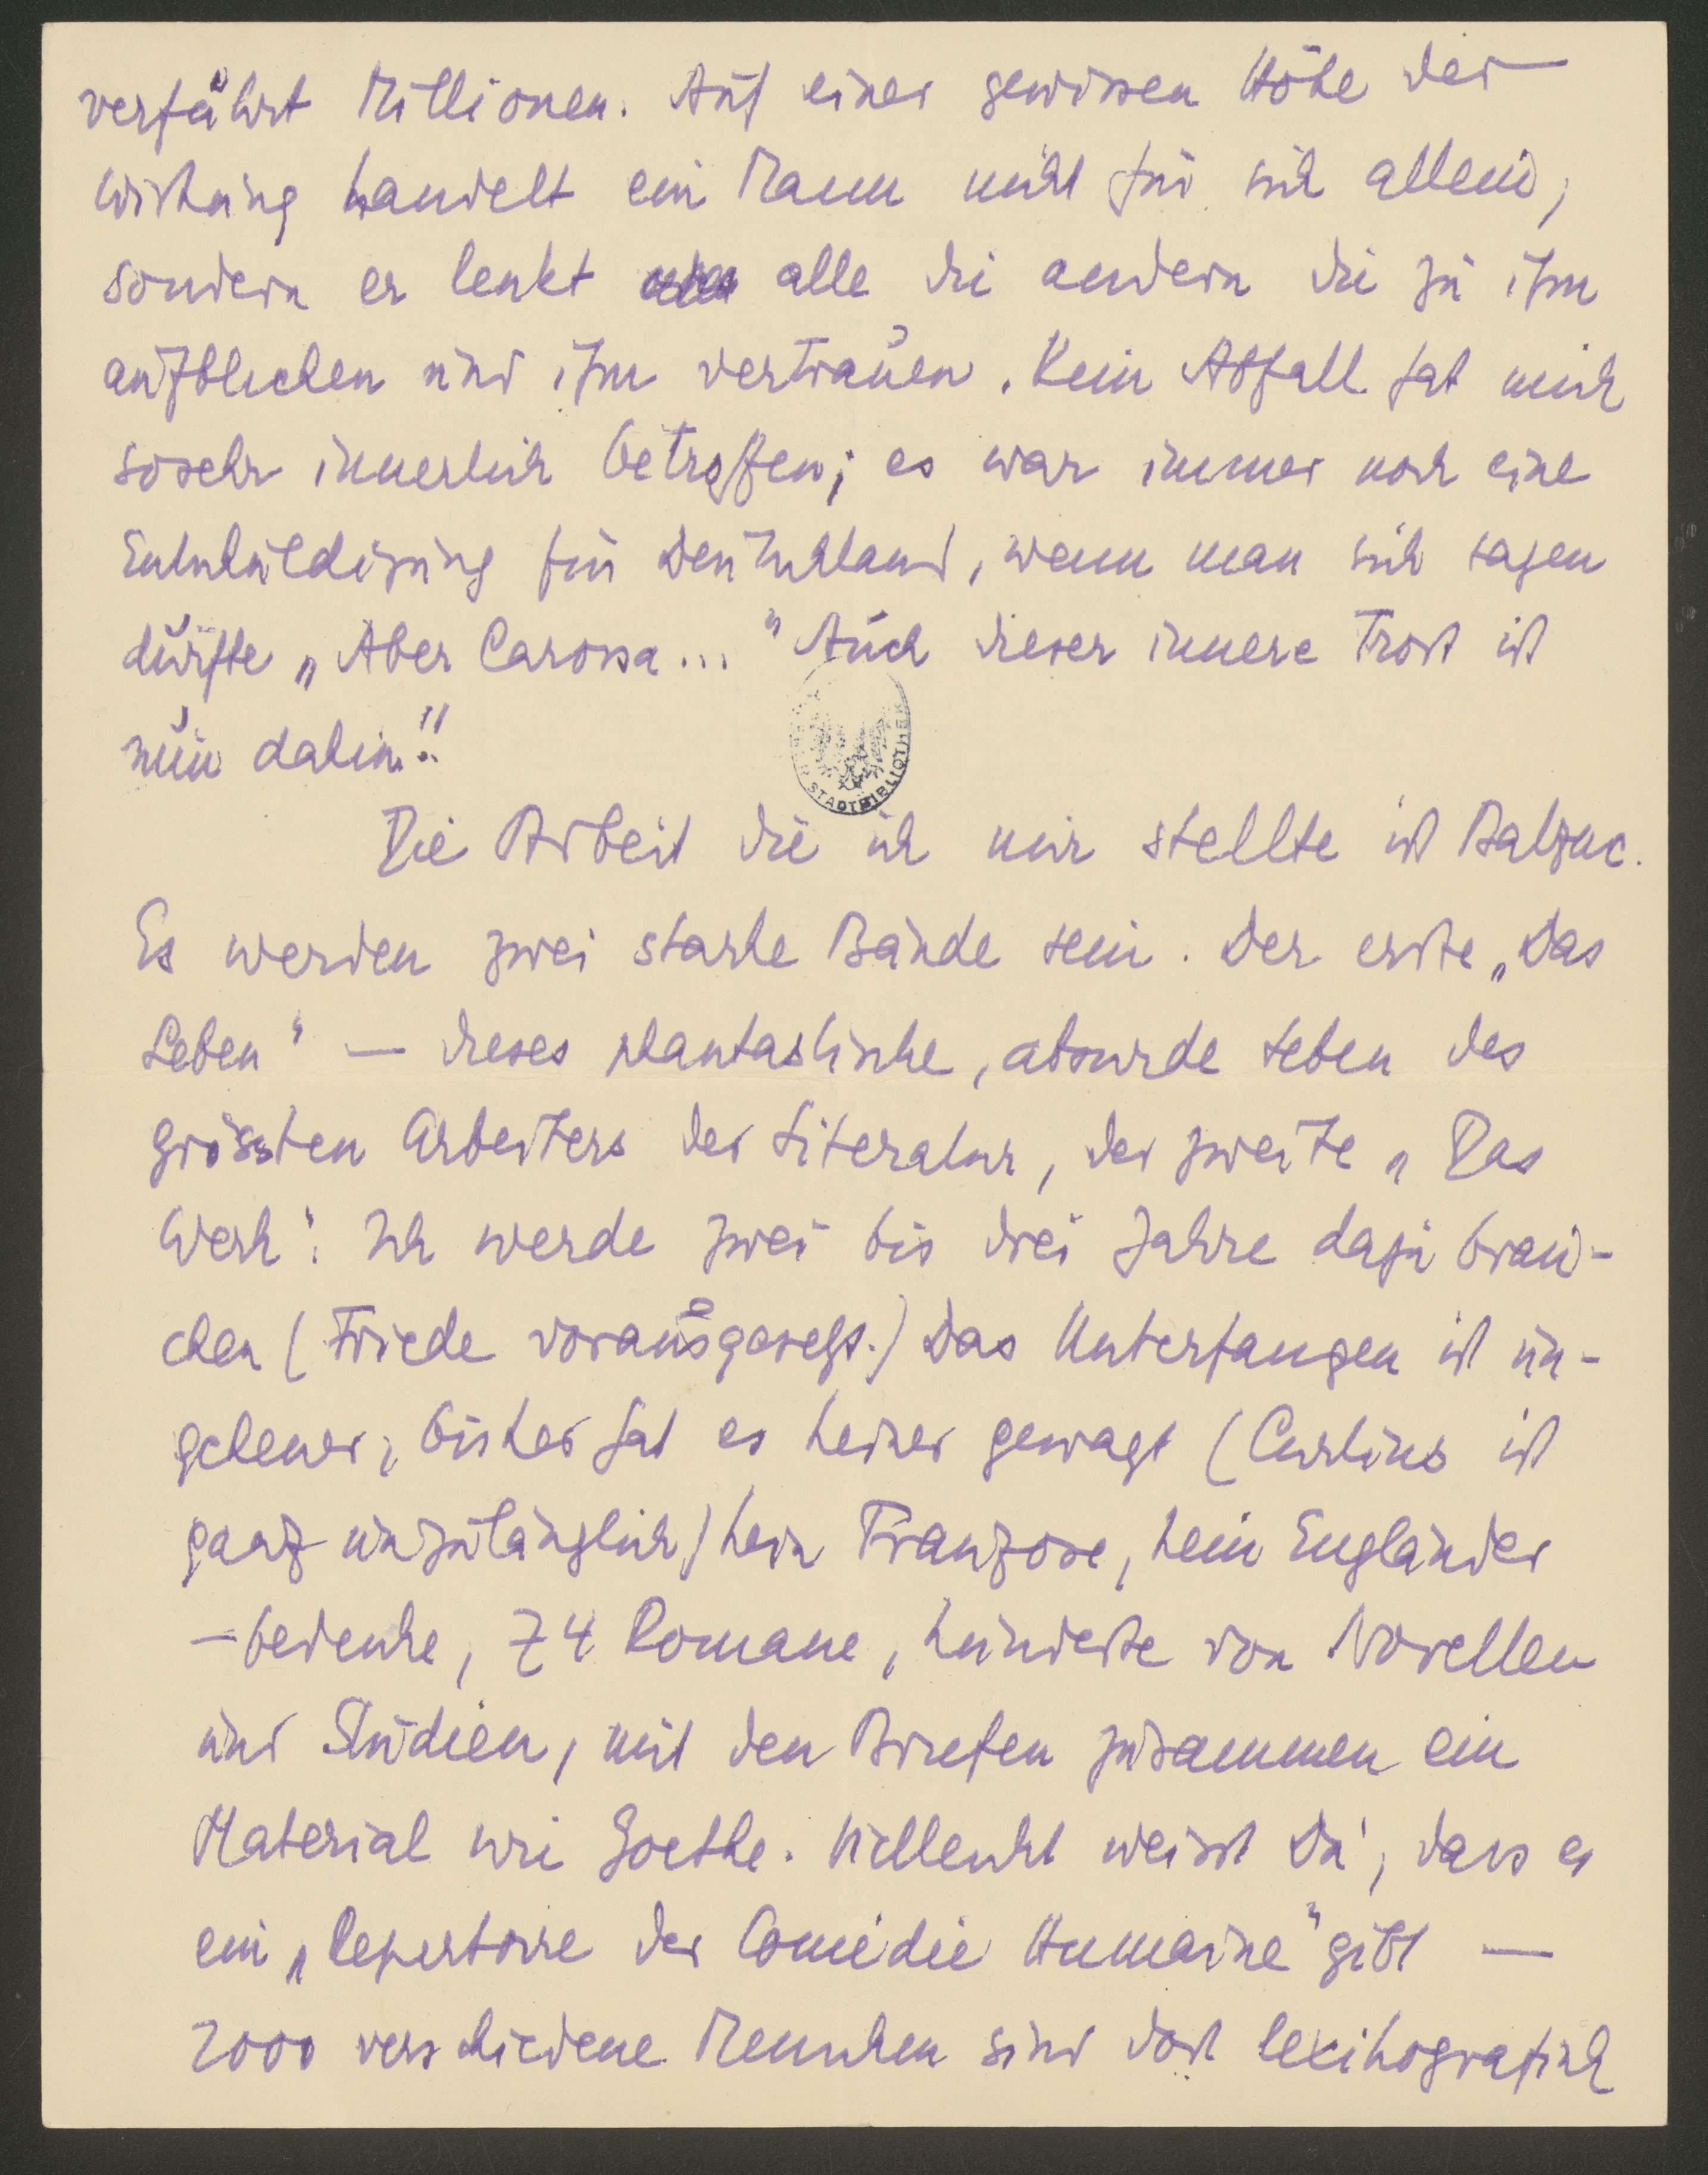 verführt Millionen. Auf einer gewissen Höhe der
Wirkung handelt ein Mann nicht für sich allein,
sondern er lenkt alle die andern die zu ihm
aufblicken und ihm vertrauen. Kein Abfall hat mich
sosehr innerlich betroffen; es war immer noch eine
Entschuldigung für Deutschland, wenn man sich sagen
dürfte „Aber Carossa..." Auch dieser innere Trost ist
nun dahin!!
STADTBIBLIOTHEK
Die Arbeit die ich mir stellte ist Balzac.
Es werden zwei starke Bände sein. Der erste „Das
Leben" — dieses phantastische, absurde Leben des
grössten Arbeiters der Literatur, der zweite „Das
Werk". Ich werde zwei bis drei Jahre dazu brau-
chen (Friede vorausgesetzt.) Das Unterfangen ist un-
geheuer, bisher hat es keiner gewagt (Curtius ist
ganz unzulänglich) kein Franzose, kein Engländer
— bedenke, 74 Romane, hunderte von Novellen
und Studien, mit den Briefen zusammen ein
Material wie Goethe. Vielleicht weisst Du, dass es
ein „Repertoire der Comédie Humaine" gibt —
2000 verschiedene Menschen sind dort lexikografisch